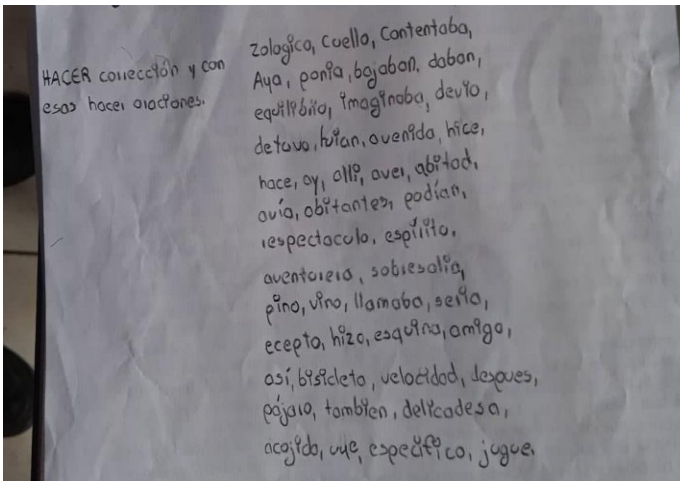 HACER corrección y con
esas hacer oraciones.
zologico, cuello, contentaba,
Aya, ponia, bajaban, daban,
equilibrio, imaginaba, devio,
detuvo, huian, avenida, hice,
hace, ay, alli, aver, abitad,
avía, abitantes, podían,
respectaculo, espírito,
aventurera, sobresalia,
pino, vino, llamaba, seria,
ecepto, hizo, esquina, amigo,
así, bisicleta, velocidad, despues,
pájaro, tambien, delicadesa,
acojido, vue, especifico, jugue.